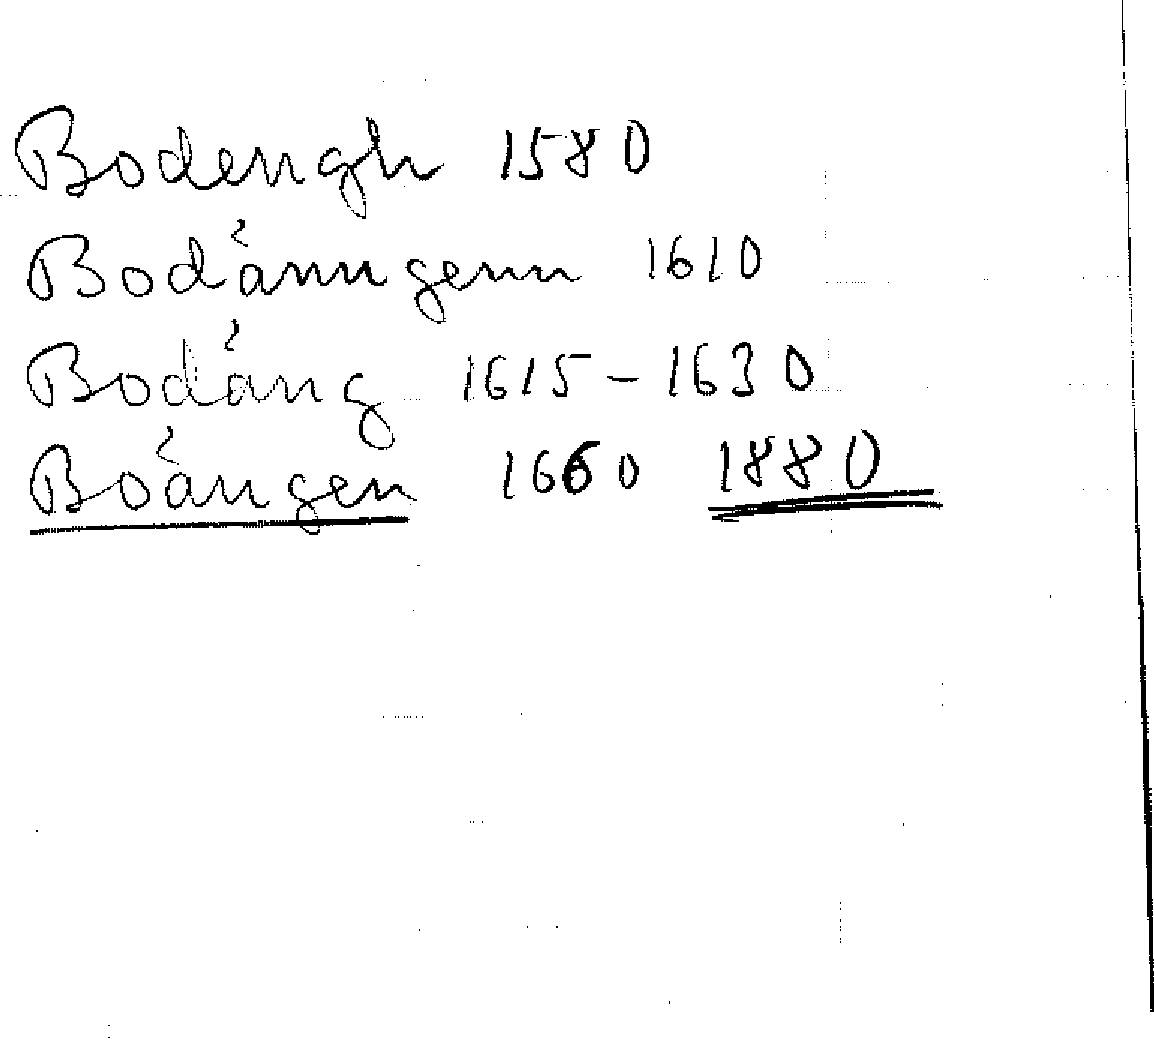 Bodengh 1580
Bodännugenn 1610
Bodäng 1615-1630
Boängen 1660 1880